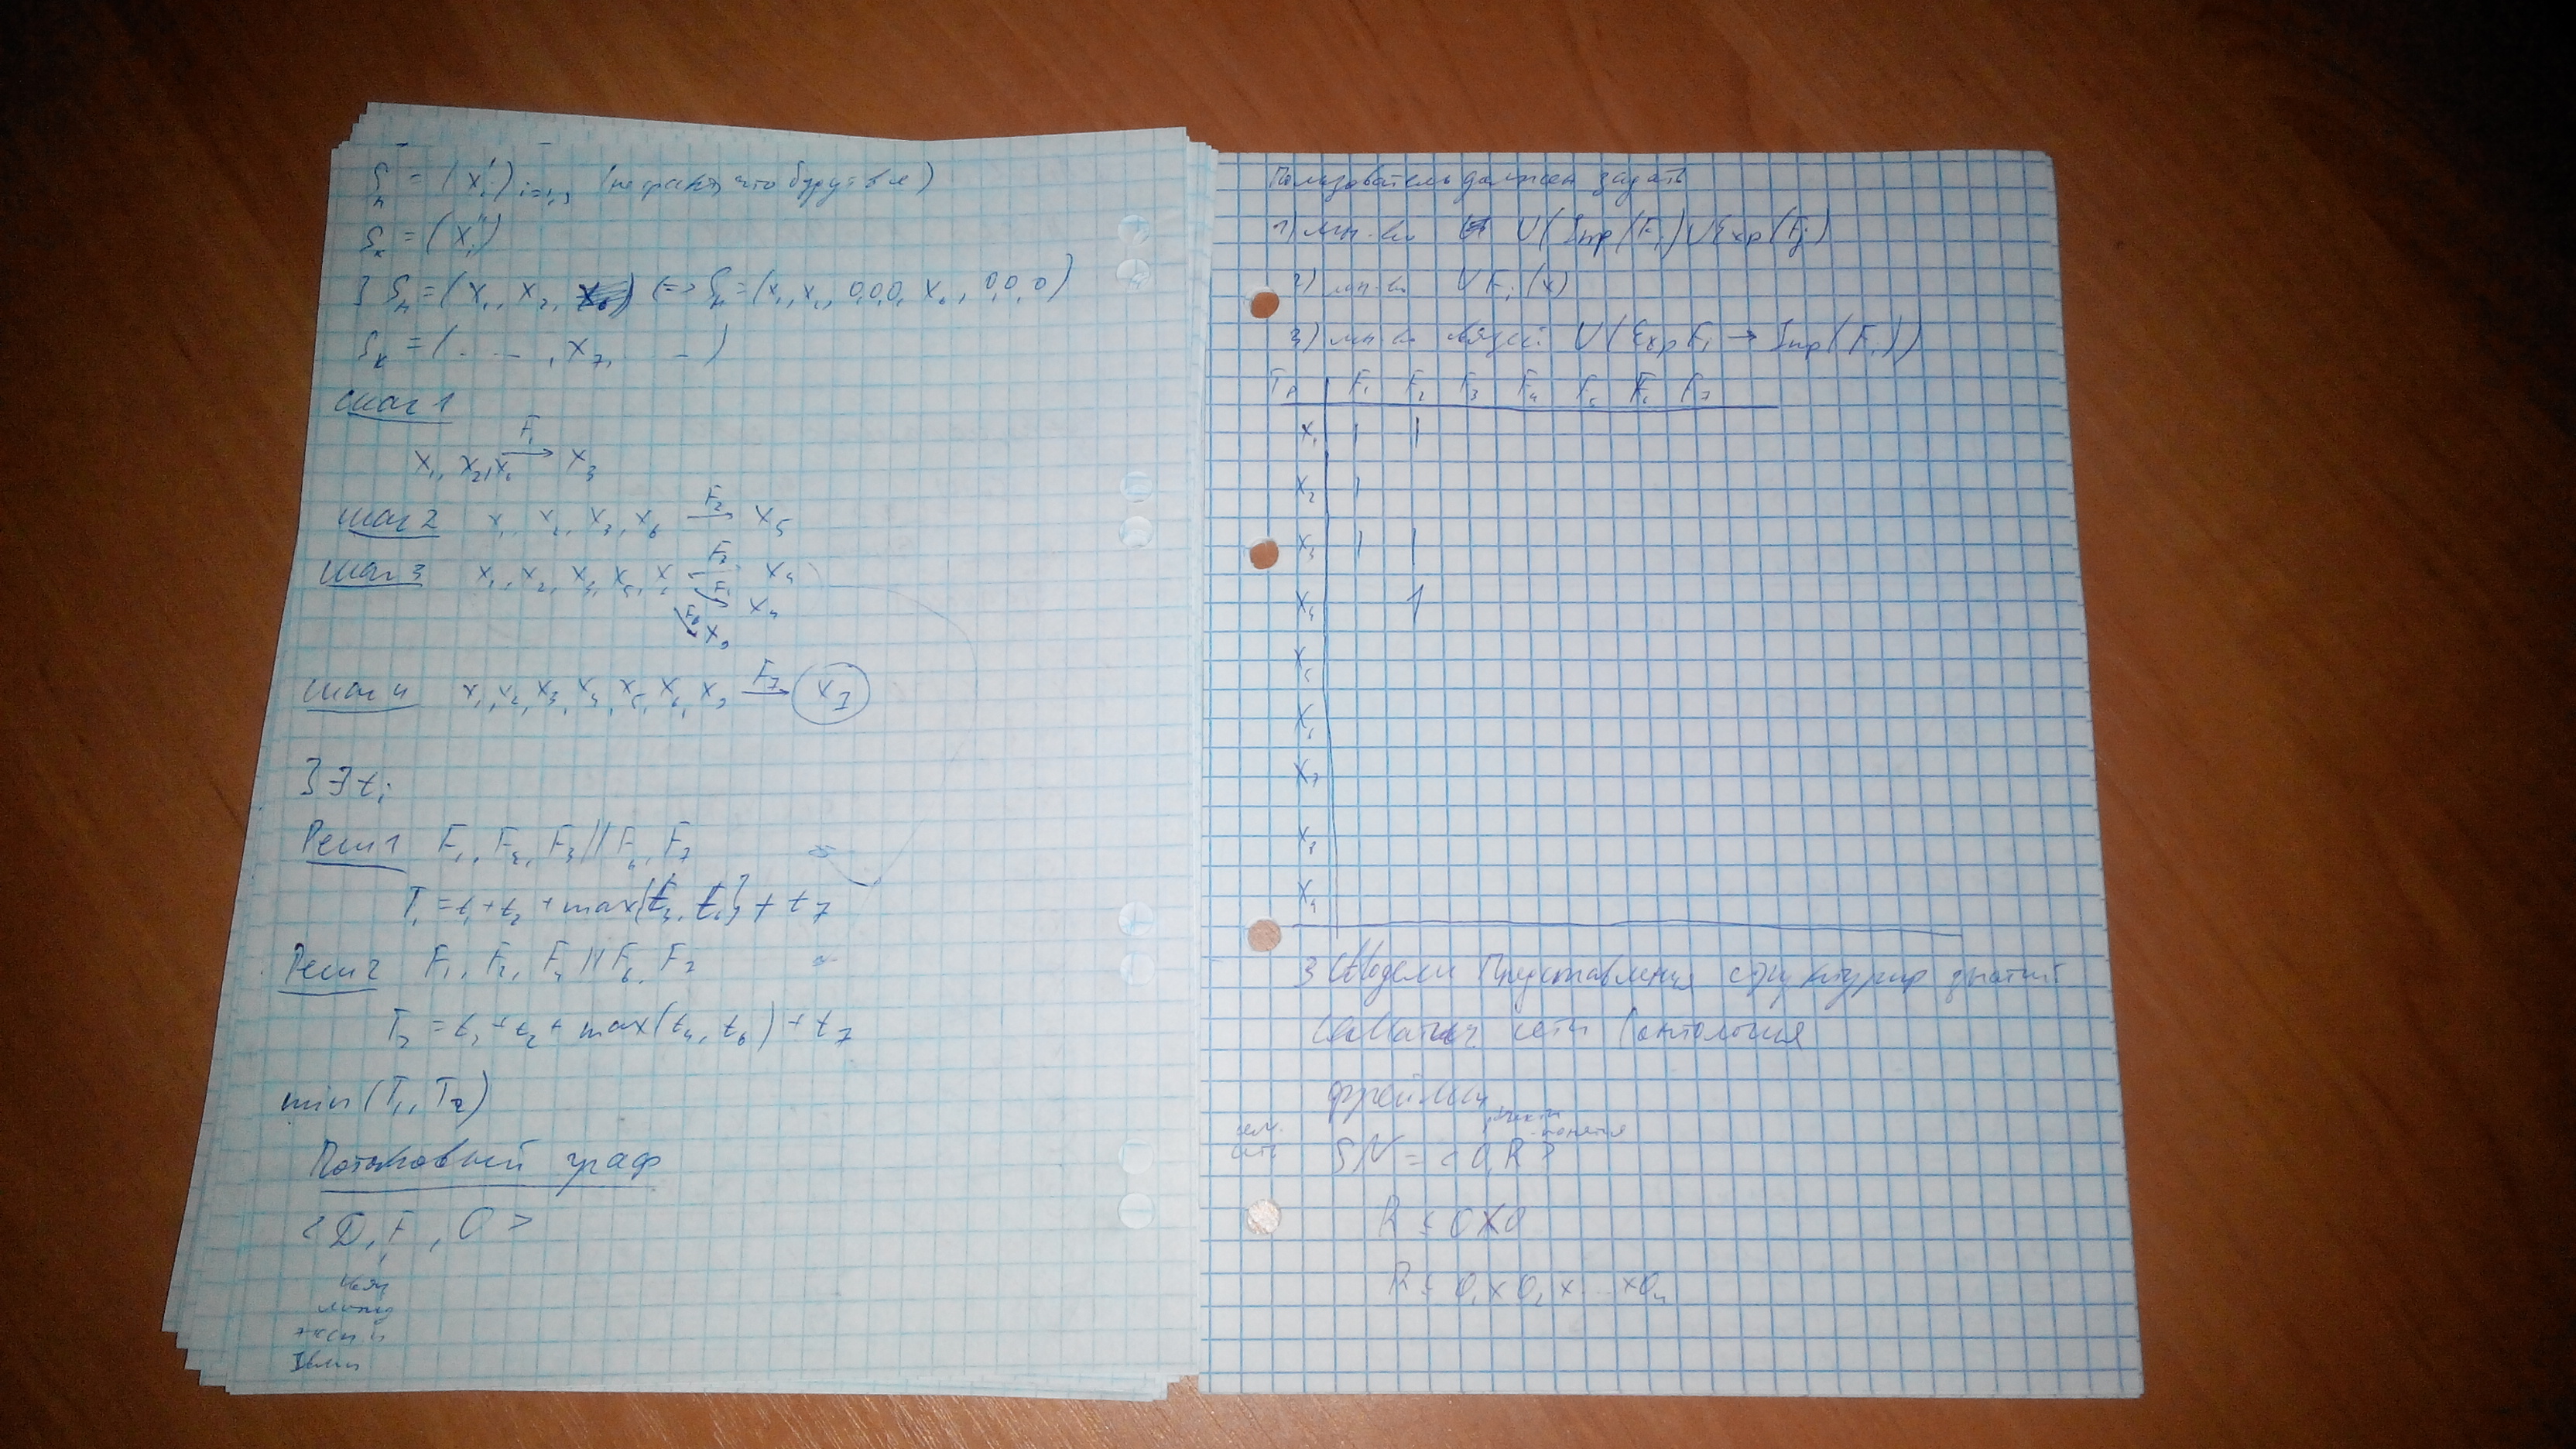 Sн = (xᵢ')ᵢ₌₁,₉ (не факт, что будут все)
Sк = (xᵢ'')
] Sн = (x₁, x₂, x₆) <=> Sн = (x₁, x₂, 0,0,0, x₆, 0,0,0)
Sк = (. . – , x₇, –)
шаг 1
x₁, x₂, x₆ →F₁ x₃
шаг 2 x₁, x₂, x₃, x₆ →F₂ x₅
шаг 3 x₁, x₂, x₃, x₅, x₆ F₃ x₄
x₄
F₆ x₉
шаг 4 x₁, x₂, x₃, x₄, x₅, x₆, x₉ →F₇ x₇
] ∃ tᵢ
Реш 1 F₁, F₂, F₃ || F₆, F₇
T₁ = t₁ + t₂ + max{t₃, t₆} + t₇
Реш 2 F₁, F₂, F₄ || F₆, F₇
T₂ = t₁ + t₂ + max(t₄, t₆) + t₇
min(T₁, T₂)
Потоковый граф
<D, F, O>
Пользователь должен задать
1) мн-во ∪(Imp(Fᵢ) ∪ Exp(Fᵢ))
2) мн-во ∪ Fᵢ(x)
3) мн-во связей ∪(Exp Fᵢ → Imp(Fⱼ))
Tp F₁ F₂ F₃ F₄ F₅ F₆ F₇
x₁ 1 1
x₂ 1
x₃ 1 1
x₄ 1
x₅
x₆
x₇
x₈
x₉
3 Модели Представления структурир знаний
Семантич сети (онтология
фреймы
понятия
сем. сеть SN = <O, R>
R ≤ O × O
R ≤ O₁ × O₂ × ... × Oₙ